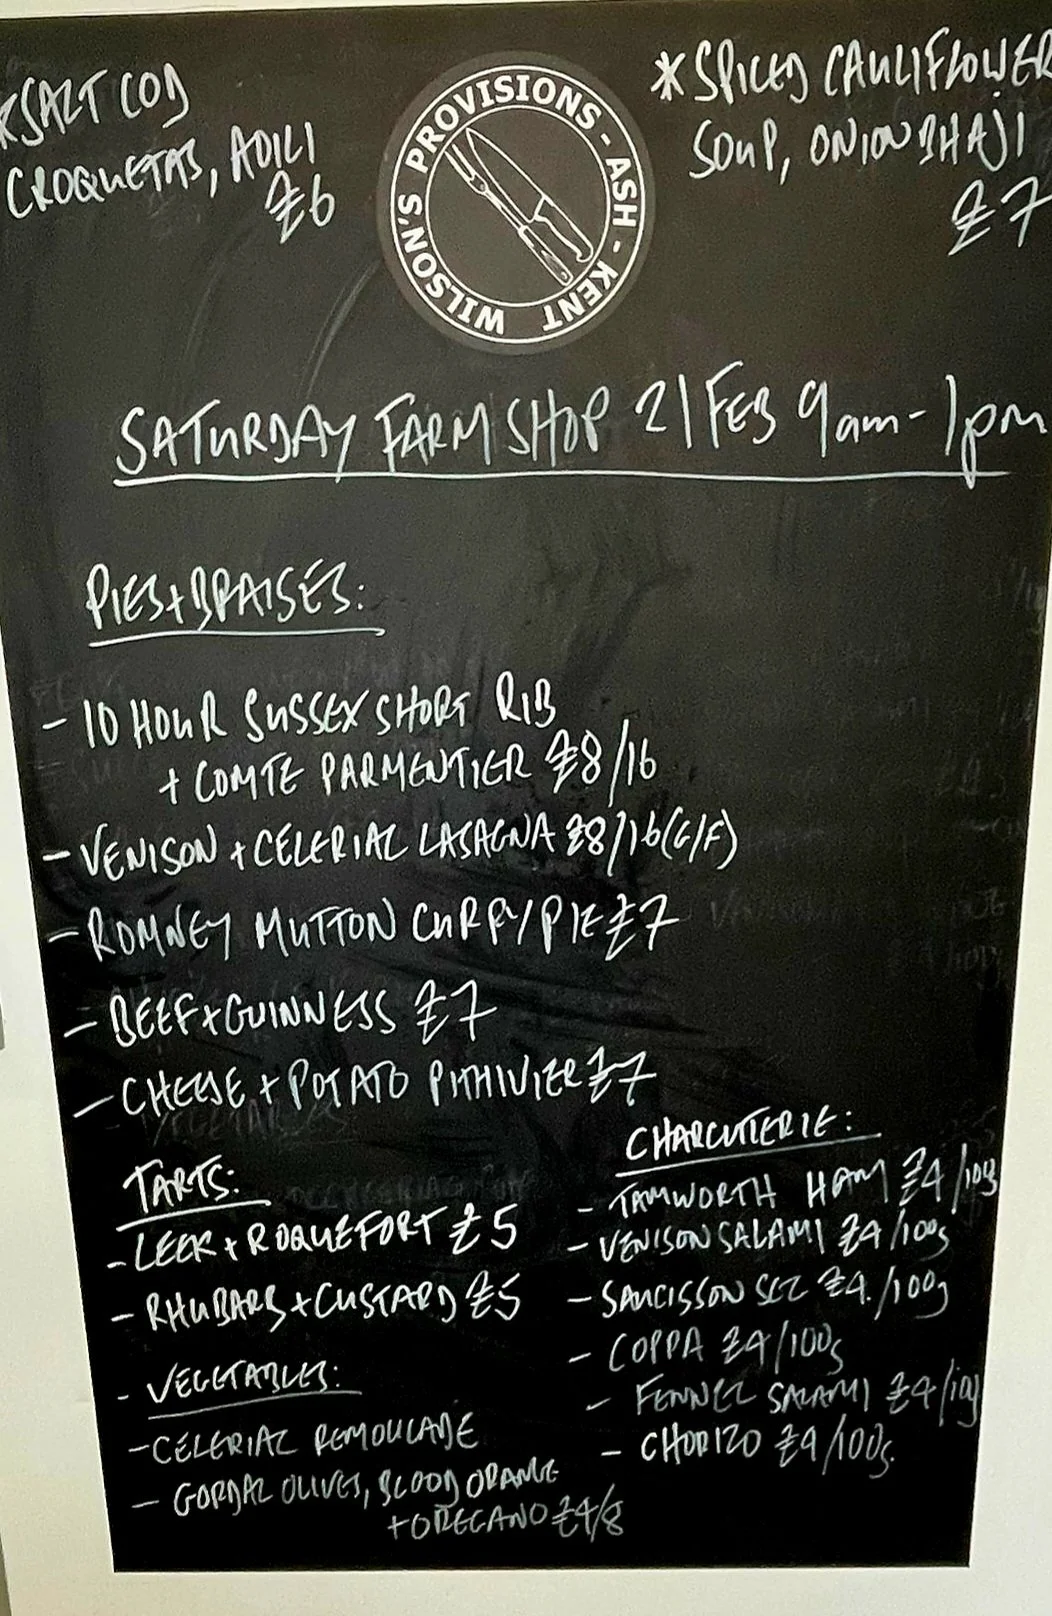 *SALT COD
CROQUETAS, AOILI
£6
WILSON'S PROVISIONS - ASH - KENT
*SPICED CAULIFLOWER
SOUP, ONION BHAJI
£7
SATURDAY FARM SHOP 21 FEB 9am-1pm
PIES+BRAISÉS:
- 10 HOUR SUSSEX SHORT RIB
+ COMTE PARMENTIER £8/16
- VENISON + CELERIAC LASAGNA £8/16(G/F)
- ROMNEY MUTTON CURRY PIE £7
- BEEF+GUINNESS £7
- CHEESE + POTATO PITHIVIER £7
TARTS:
- LEEK + ROQUEFORT £5
- RHUBARB + CUSTARD £5
- VEGETABLES:
- CELERIAC REMOULADE
- GORDAL OLIVES, BLOOD ORANGE
+ OREGANO £4/8
CHARCUTERIE:
- TAMWORTH HAM £4/100g
- VENISON SALAMI £4/100g
- SAUCISSON SEC £4/100g
- COPPA £4/100g
- FENNEL SALAMI £4/100g
- CHORIZO £4/100g.